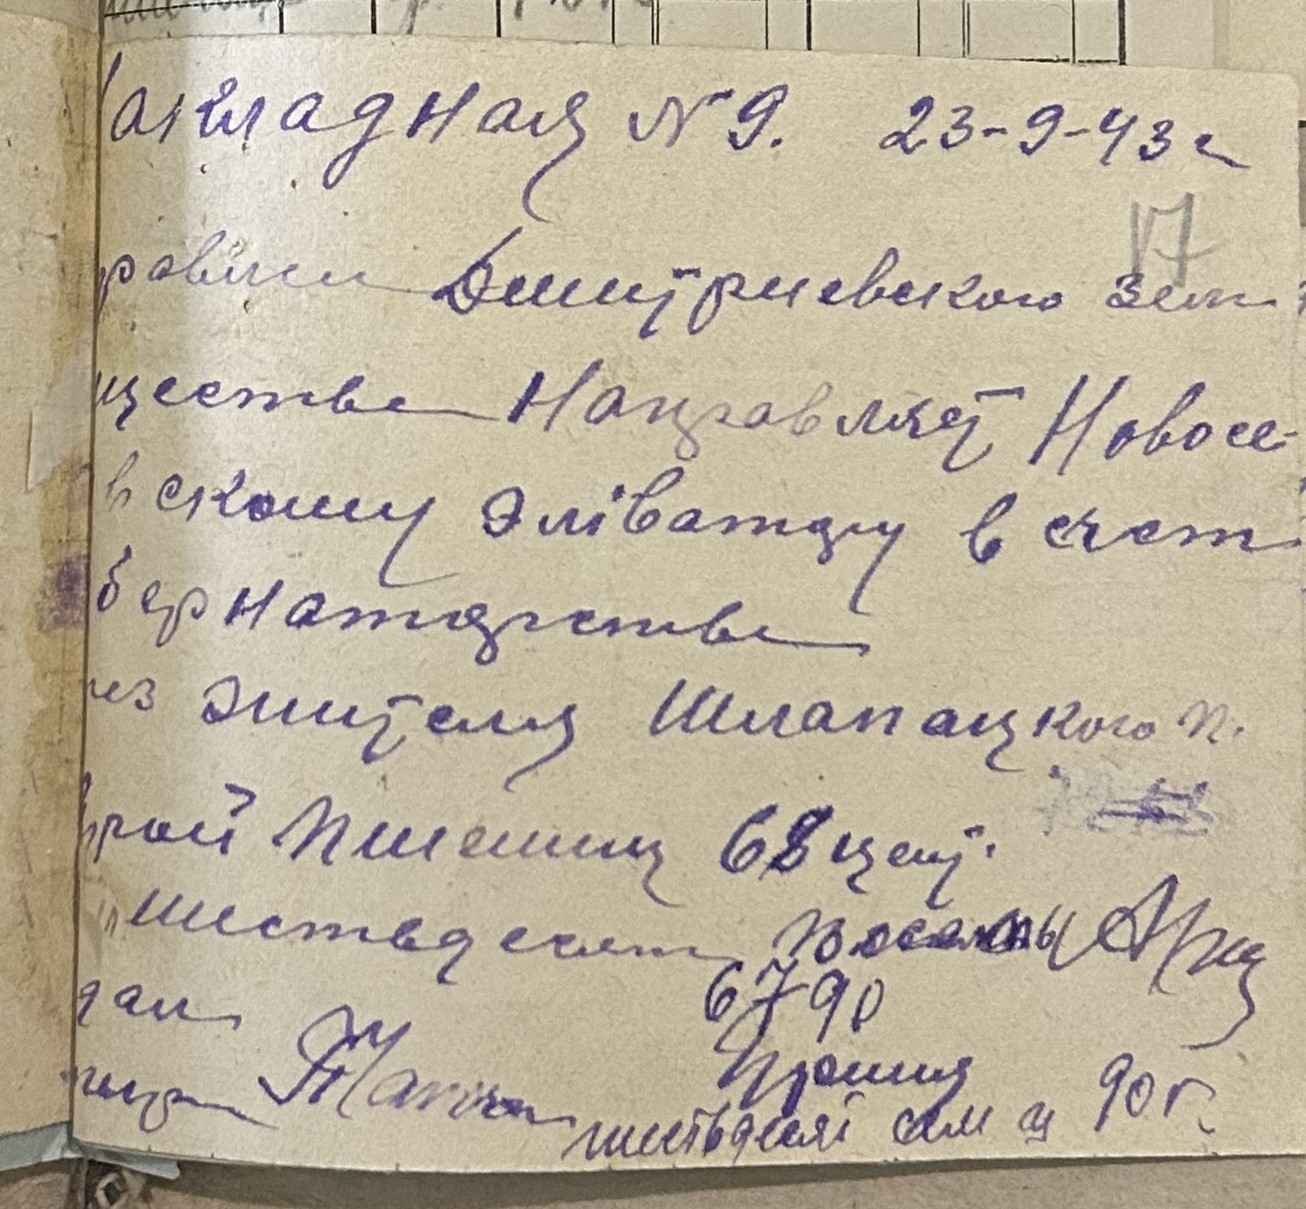 акладная № 9. 23-9-43г
17
равлен Дмитриевского зем
ществе Направляет Новосе-
вскому Эліватару в счет
бернаторства
рез жителя Шлапацкого П.
рой Пшениц 68 цент.
шестьдесят восемь
дал 6790
Принял 90 г.
шестьдесят сем ц